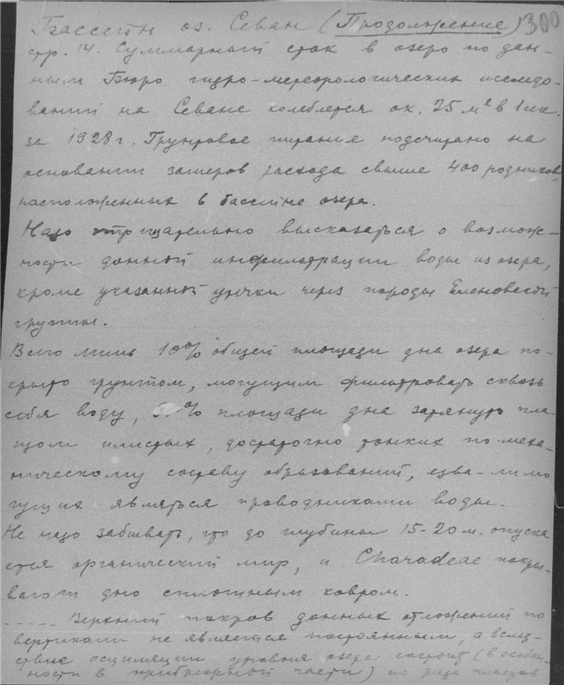 Бассейн оз. Севан (Продолжение) 300
стр. 14. Суммарный сток в озеро по дан-
ным Бюро гидро-метеорологических исследо-
ваний на Севане колеблется ок. 25 м² в 1 сек.
за 1928 г. Грунтовое питание подсчитано на
основании замеров расхода свыше 400 родников,
расположенных в бассейне озера.
Надо отрицательно высказаться о возмож-
ности данной инфильтрации воды из озера,
кроме указанной утечки через породы Еленовской
группы.
Всего лишь 10% общей площади дна озера по-
крыто грунтом, могущим фильтровать сквозь
себя воду, % площади дна затянуто пла-
щом илистых, достаточно тонких по меха-
ническому составу образований, едва-ли мо
гущих являться проводниками воды.
Не надо забывать, что до глубины 15-20 м. опуска
ется органический мир, и Charadeae покры-
вают дно сплошным ковром.
..... Верхний покров донных отложений по
вертикали не является постоянным, а вслед-
ствие осциляции уровня озера состоит (в особен-
ности в прибрежной части) из ряда